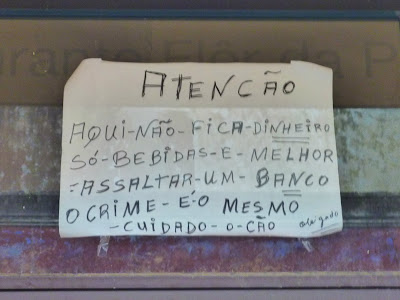 urante Flôr da P
ATENCÃO
AQUI-NÃO-FICA-DINHEIRO
SÓ-BEBIDAS-E-MELHOR
-ASSALTAR-UM-BANCO
O CRIME-E-O MESMO
-CUIDADO-O-CÃO obrigado